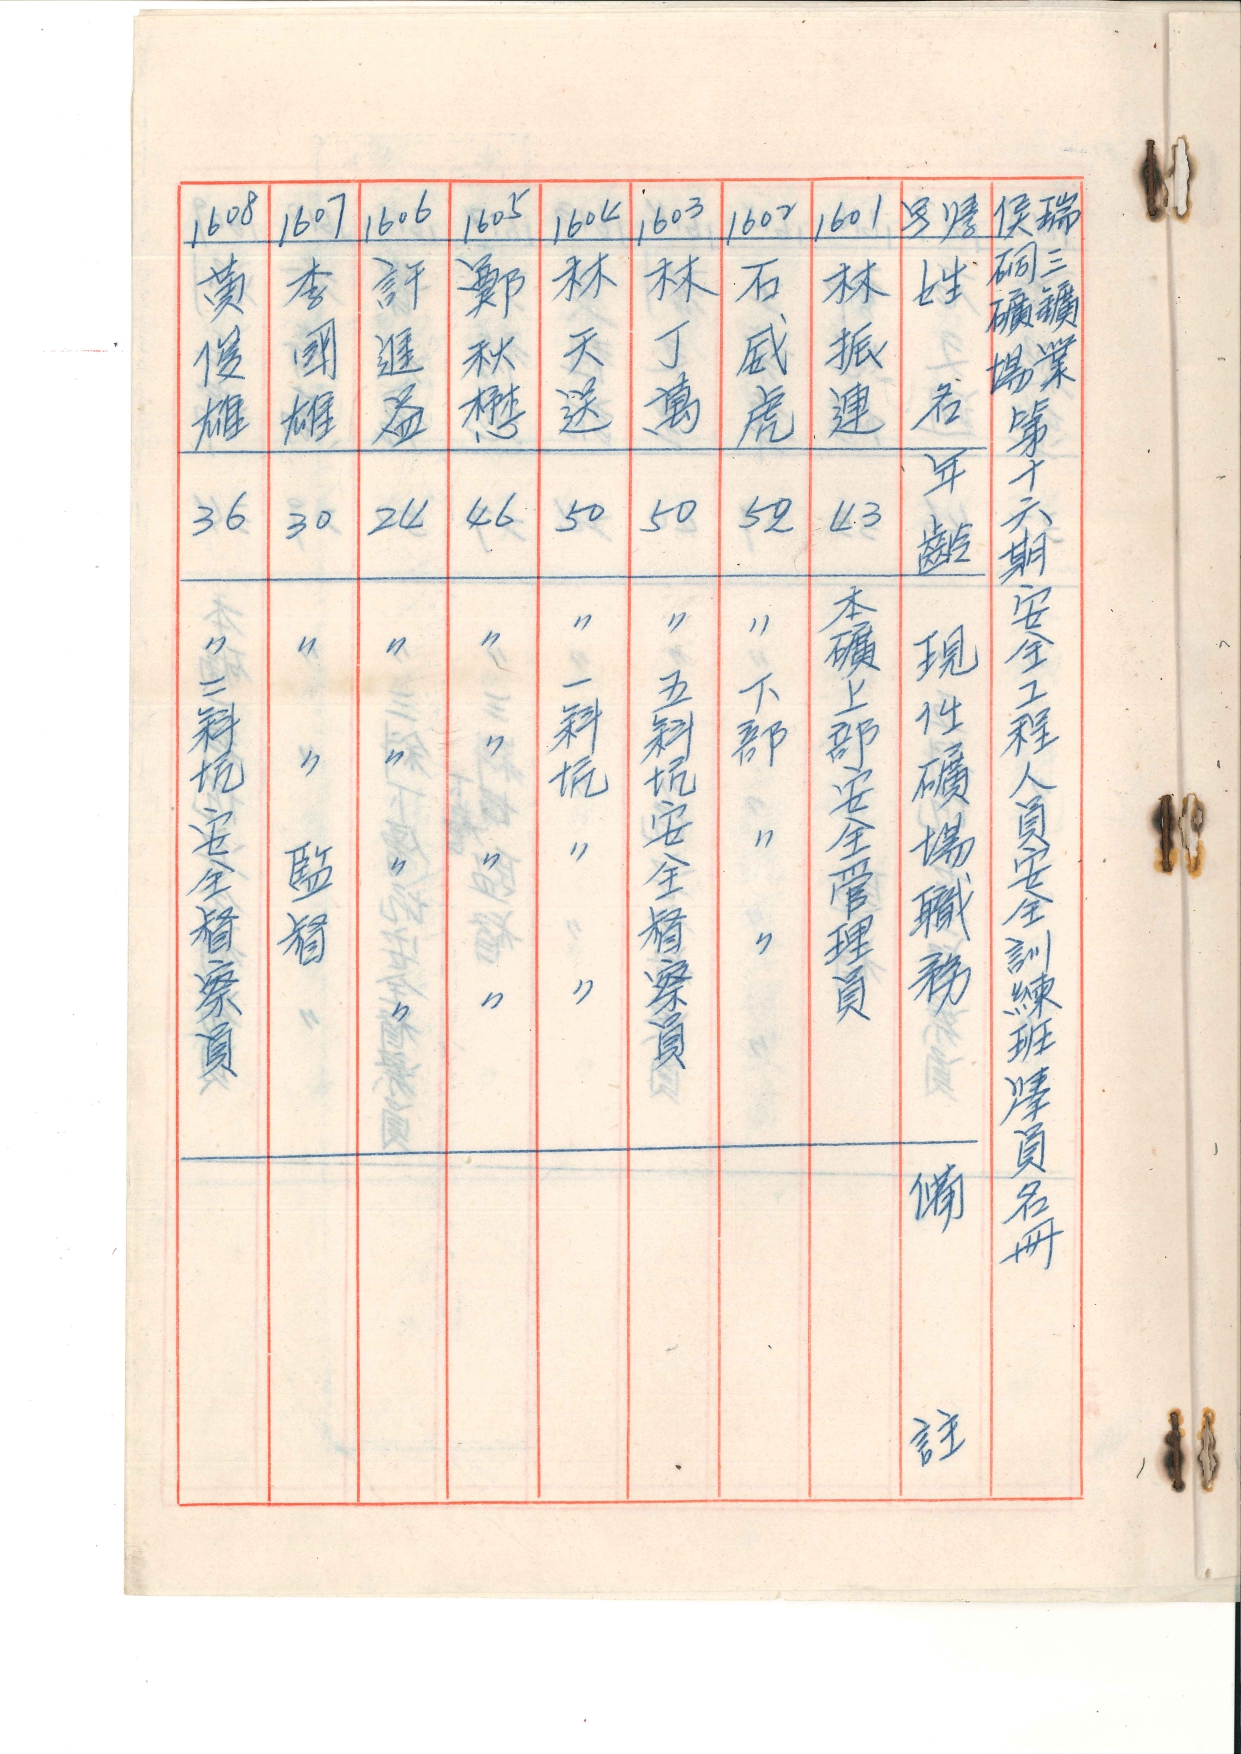 瑞三鑛業
侯硐礦場
第十六期安全工程人員安全訓練班學員名冊
學號 姓名 年齡 現任礦場職務 備註
1601 林振連 43 本礦上部安全管理員
1602 石威虎 52 〃下部〃〃
1603 林丁萬 50 〃五斜坑安全督察員
1604 林天送 50 〃一斜坑〃〃
1605 鄭秋懋 46 〃〃〃〃
1606 許進益 24 〃〃〃〃
1607 李國雄 30 〃〃監督〃
1608 黃俊雄 36 〃二斜坑安全督察員